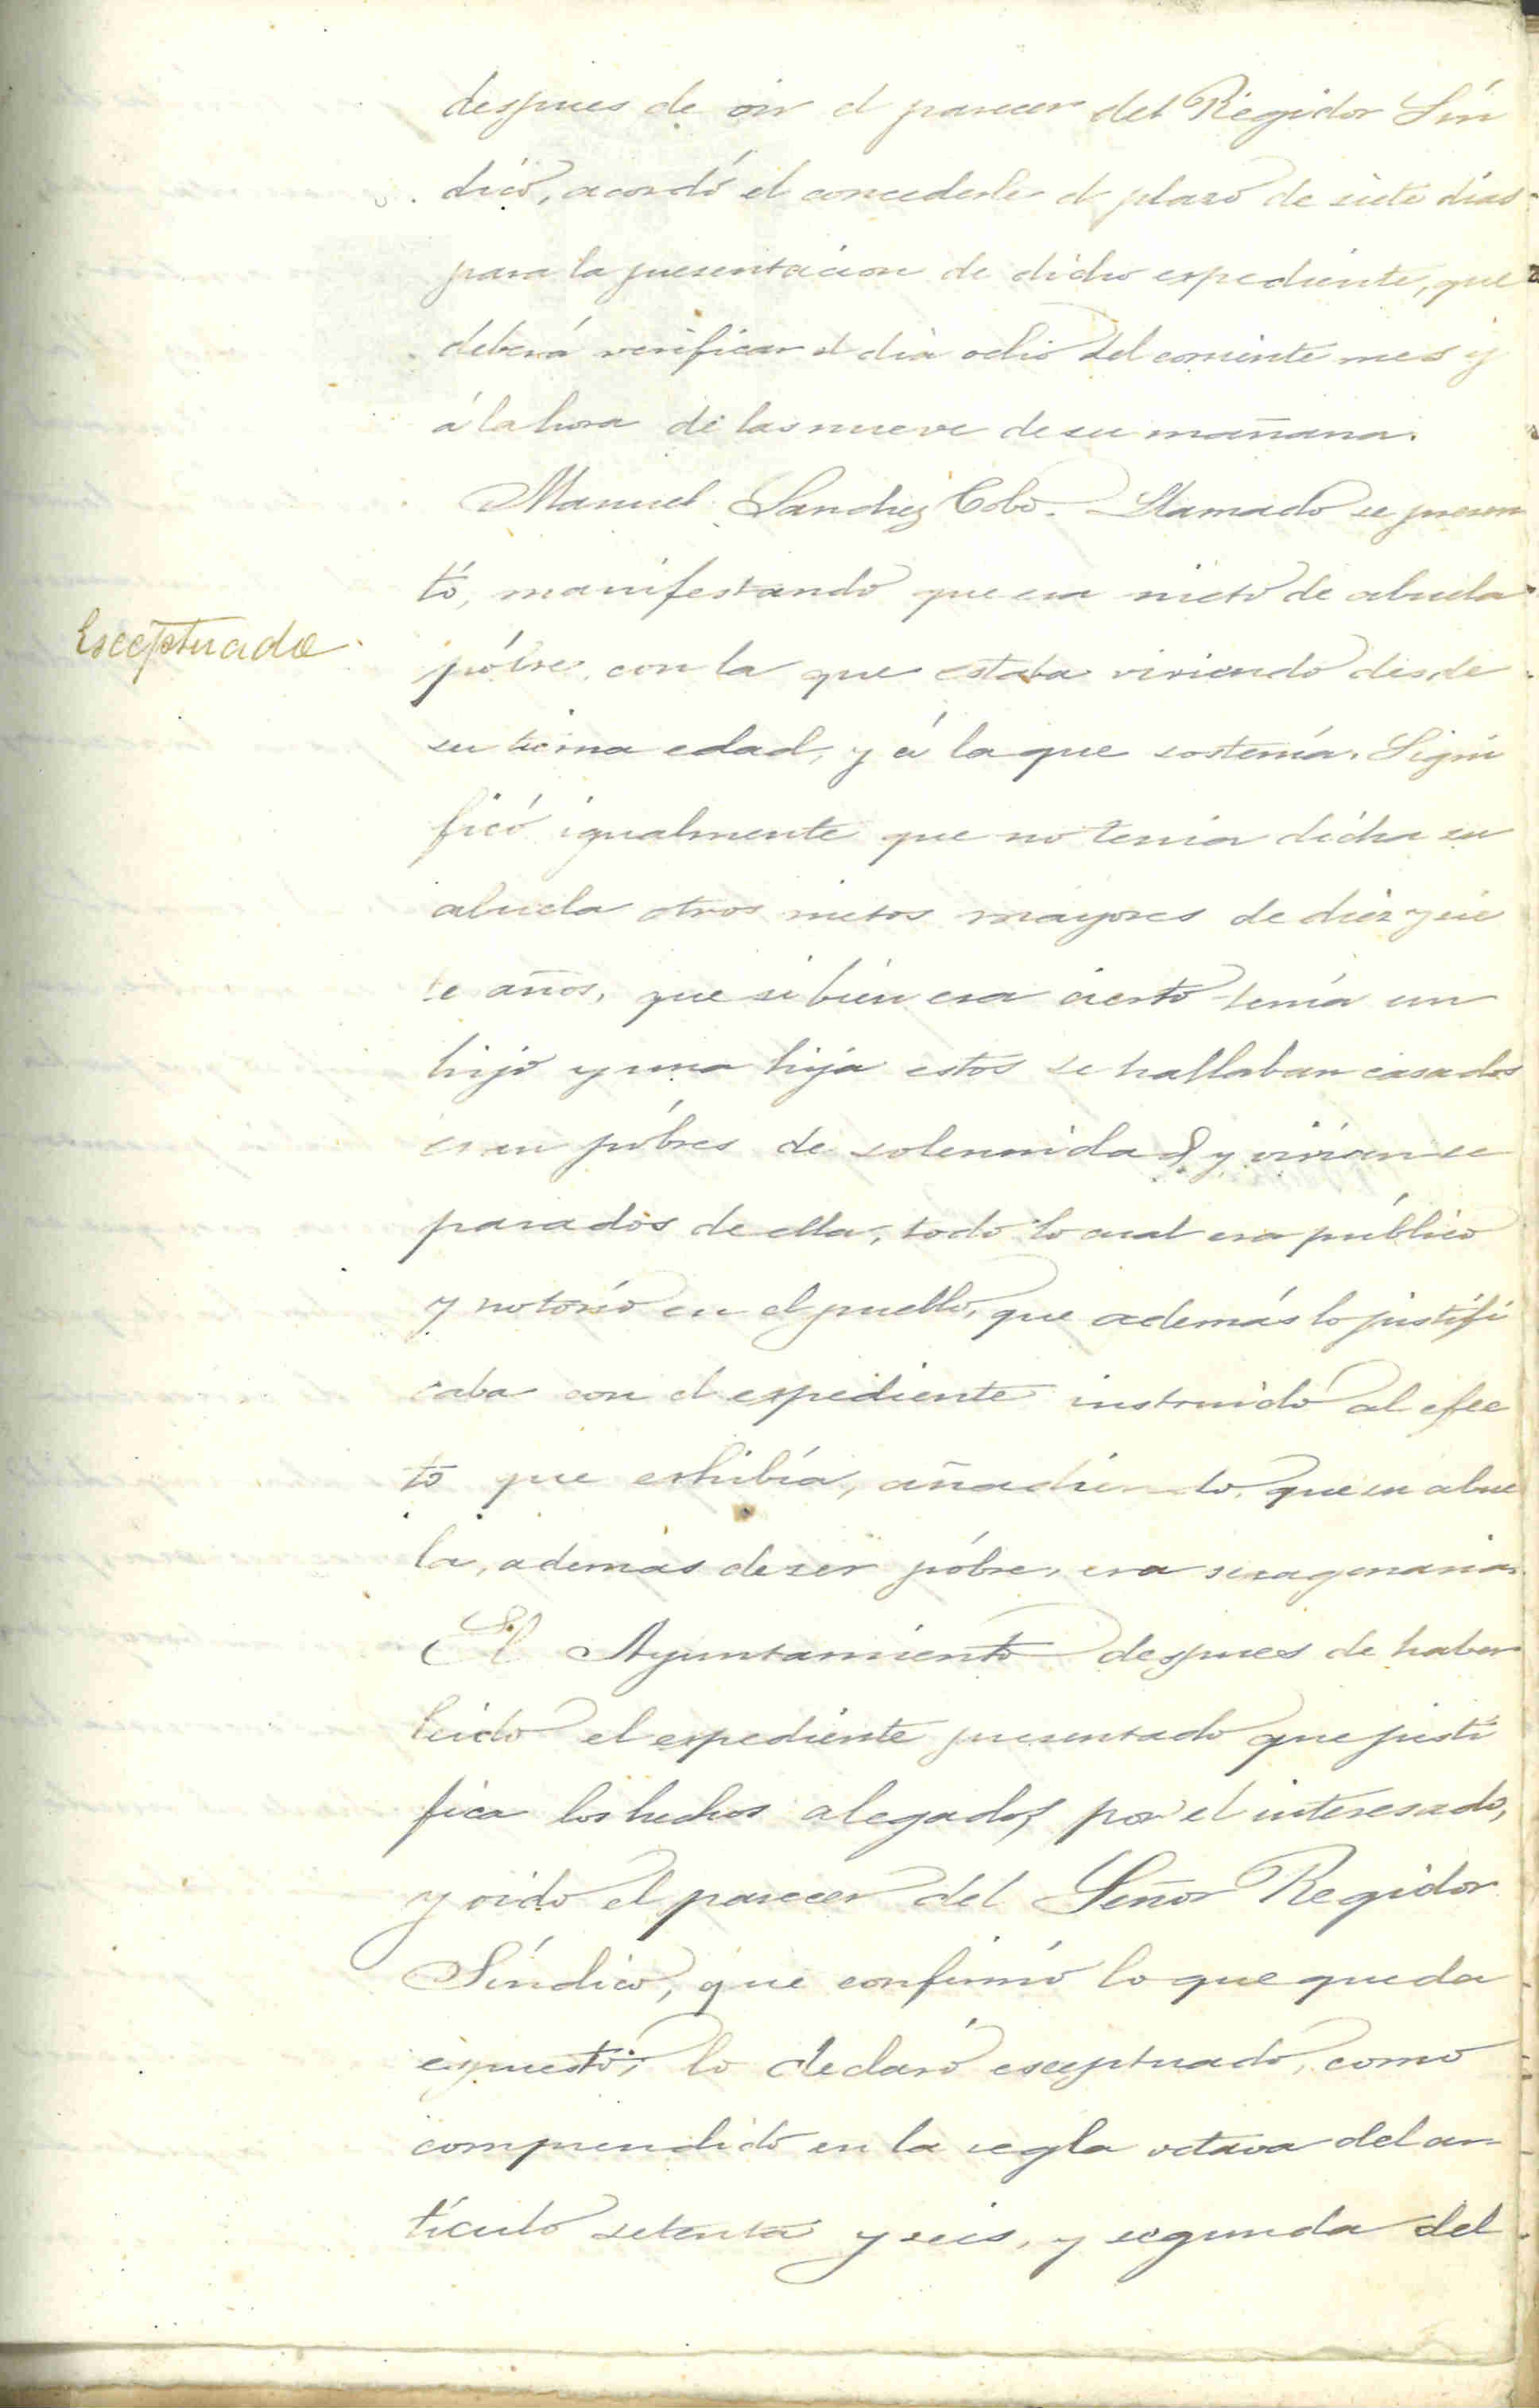 despues de oir el parecer del Regidor Sín
dico, acordó el concederle el plazo de siete dias
para la presentacion de dicho espediente, que
deberá verificar el dia ocho del corriente mes y
á la hora de las nueve de su mañana.
Manuel Sanchez Cobo. Llamado se presen
tó, manifestando que era nieto de abuela
Esceptuado
póbre, con la que estaba viviendo desde
su tierna edad, y á la que sostenía. Signi
ficó igualmente que no tenia dicha su
abuela otros nietos mayores de diez y sie
te años, que si bien era cierto tenía un
hijo y una hija estos se hallaban casados
eran póbres de solemnidad y vivian se
parados de ella, todo lo cual era público
y notorio en el pueblo, que además lo justifi
caba con el espediente instruido al efec
to que exhibía, añadiendo, que su abue
la, ademas de ser póbre, era sexagenaria.
El Ayuntamiento despues de haber
leido el espediente presentado que justi
fica los hechos alegados por el interesado,
y oido el parecer del Señor Regidor
Síndico, que confirmó lo que queda
espuesto, lo declaró esceptuado, como
comprendido en la regla octava del ar
tículo setenta y seis, y segunda del